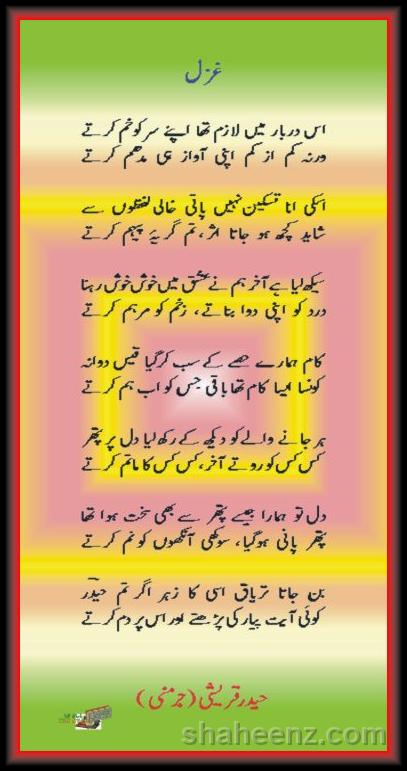 غزل
اس دربار میں لازم تھا اپنے سر کو خم کرتے
ورنہ کم از کم اپنی آواز ہی مدھم کرتے
اسکی انا تسکین نہیں پاتی خالی لفظوں سے
شاید کچھ ہو جاتا اثر، تم گریۂ پیہم کرتے
سیکھ لیا ہے آخر ہم نے عشق میں خوش خوش رہنا
درد کو اپنی دوا بناتے، زخم کو مرہم کرتے
کام ہمارے حصے کے سب کر گیا قیس دوانہ
کونسا ایسا کام تھا باقی جس کو اب ہم کرتے
ہر جانے والے کو دیکھ کے رکھ لیا دل پر پتھر
کس کس کو روتے آخر، کس کس کا ماتم کرتے
دل تو ہمارا جیسے پتھر سے بھی سخت ہوا تھا
پتھر پانی ہو گیا، سوکھی آنکھوں کو نم کرتے
بن جاتا تریاق اسی کا زہر اگر تم حیدرؔ
کوئی آیت پیار کی پڑھتے اور اس پر دم کرتے
حیدر قریشی (جرمنی)
shaheenz.com